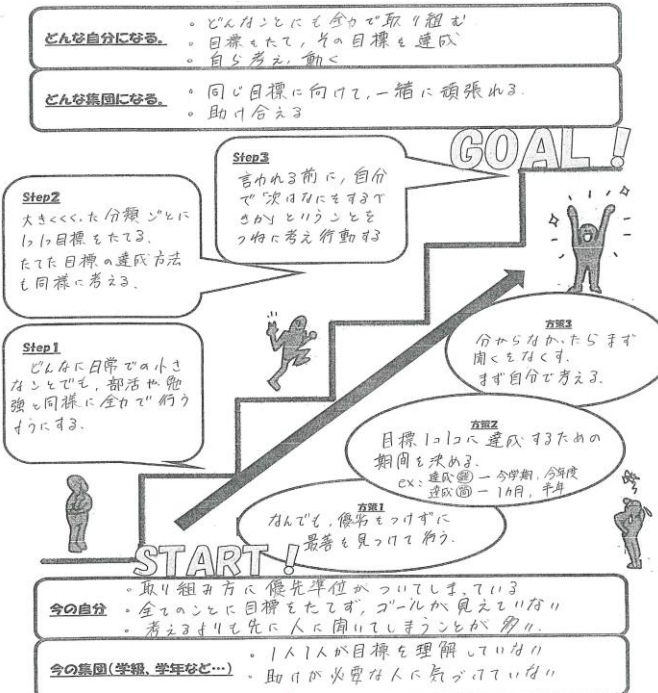 どんな自分になる。
・どんなことにも全力で取り組む
・目標をたて、その目標を達成
・自ら考え、動く
どんな集団になる。
・同じ目標に向けて、一緒に頑張れる。
・助け合える
GOAL!
Step3
言われる前に、自分
で「次はなにをするべ
きか」ということを
つねに考え行動する
Step2
大きくくくった分類ごとに
1つ1つ目標をたてる。
たてた目標の達成方法
も同様に考える。
Step1
どんなに日常での小さ
なことでも、部活や勉
強と同様に全力で行う
ようにする。
方策3
分からなかったらまず
聞くをなくす。
まず自分で考える。
方策2
目標1コ1コに達成するための
期間を決める。
ex: 達成㊓ー今学期、今年度
達成 ー1カ月、半年
方策1
なんでも、優劣をつけずに
最善を見つけて行う。
START!
今の自分
・取り組み方に優先準位がついてしまっている
・全てのことに目標をたてず、ゴールが見えていない
・考えるよりも先に人に聞いてしまうことが多い。
今の集団(学級、学年など…)
・1人1人が目標を理解していない
・助けが必要な人に気づけていない